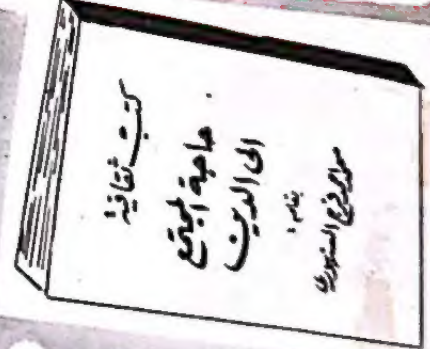 كتب ثقافية
حاجة المجتمع
الى الدين
بقلم :
فرج السنهوري